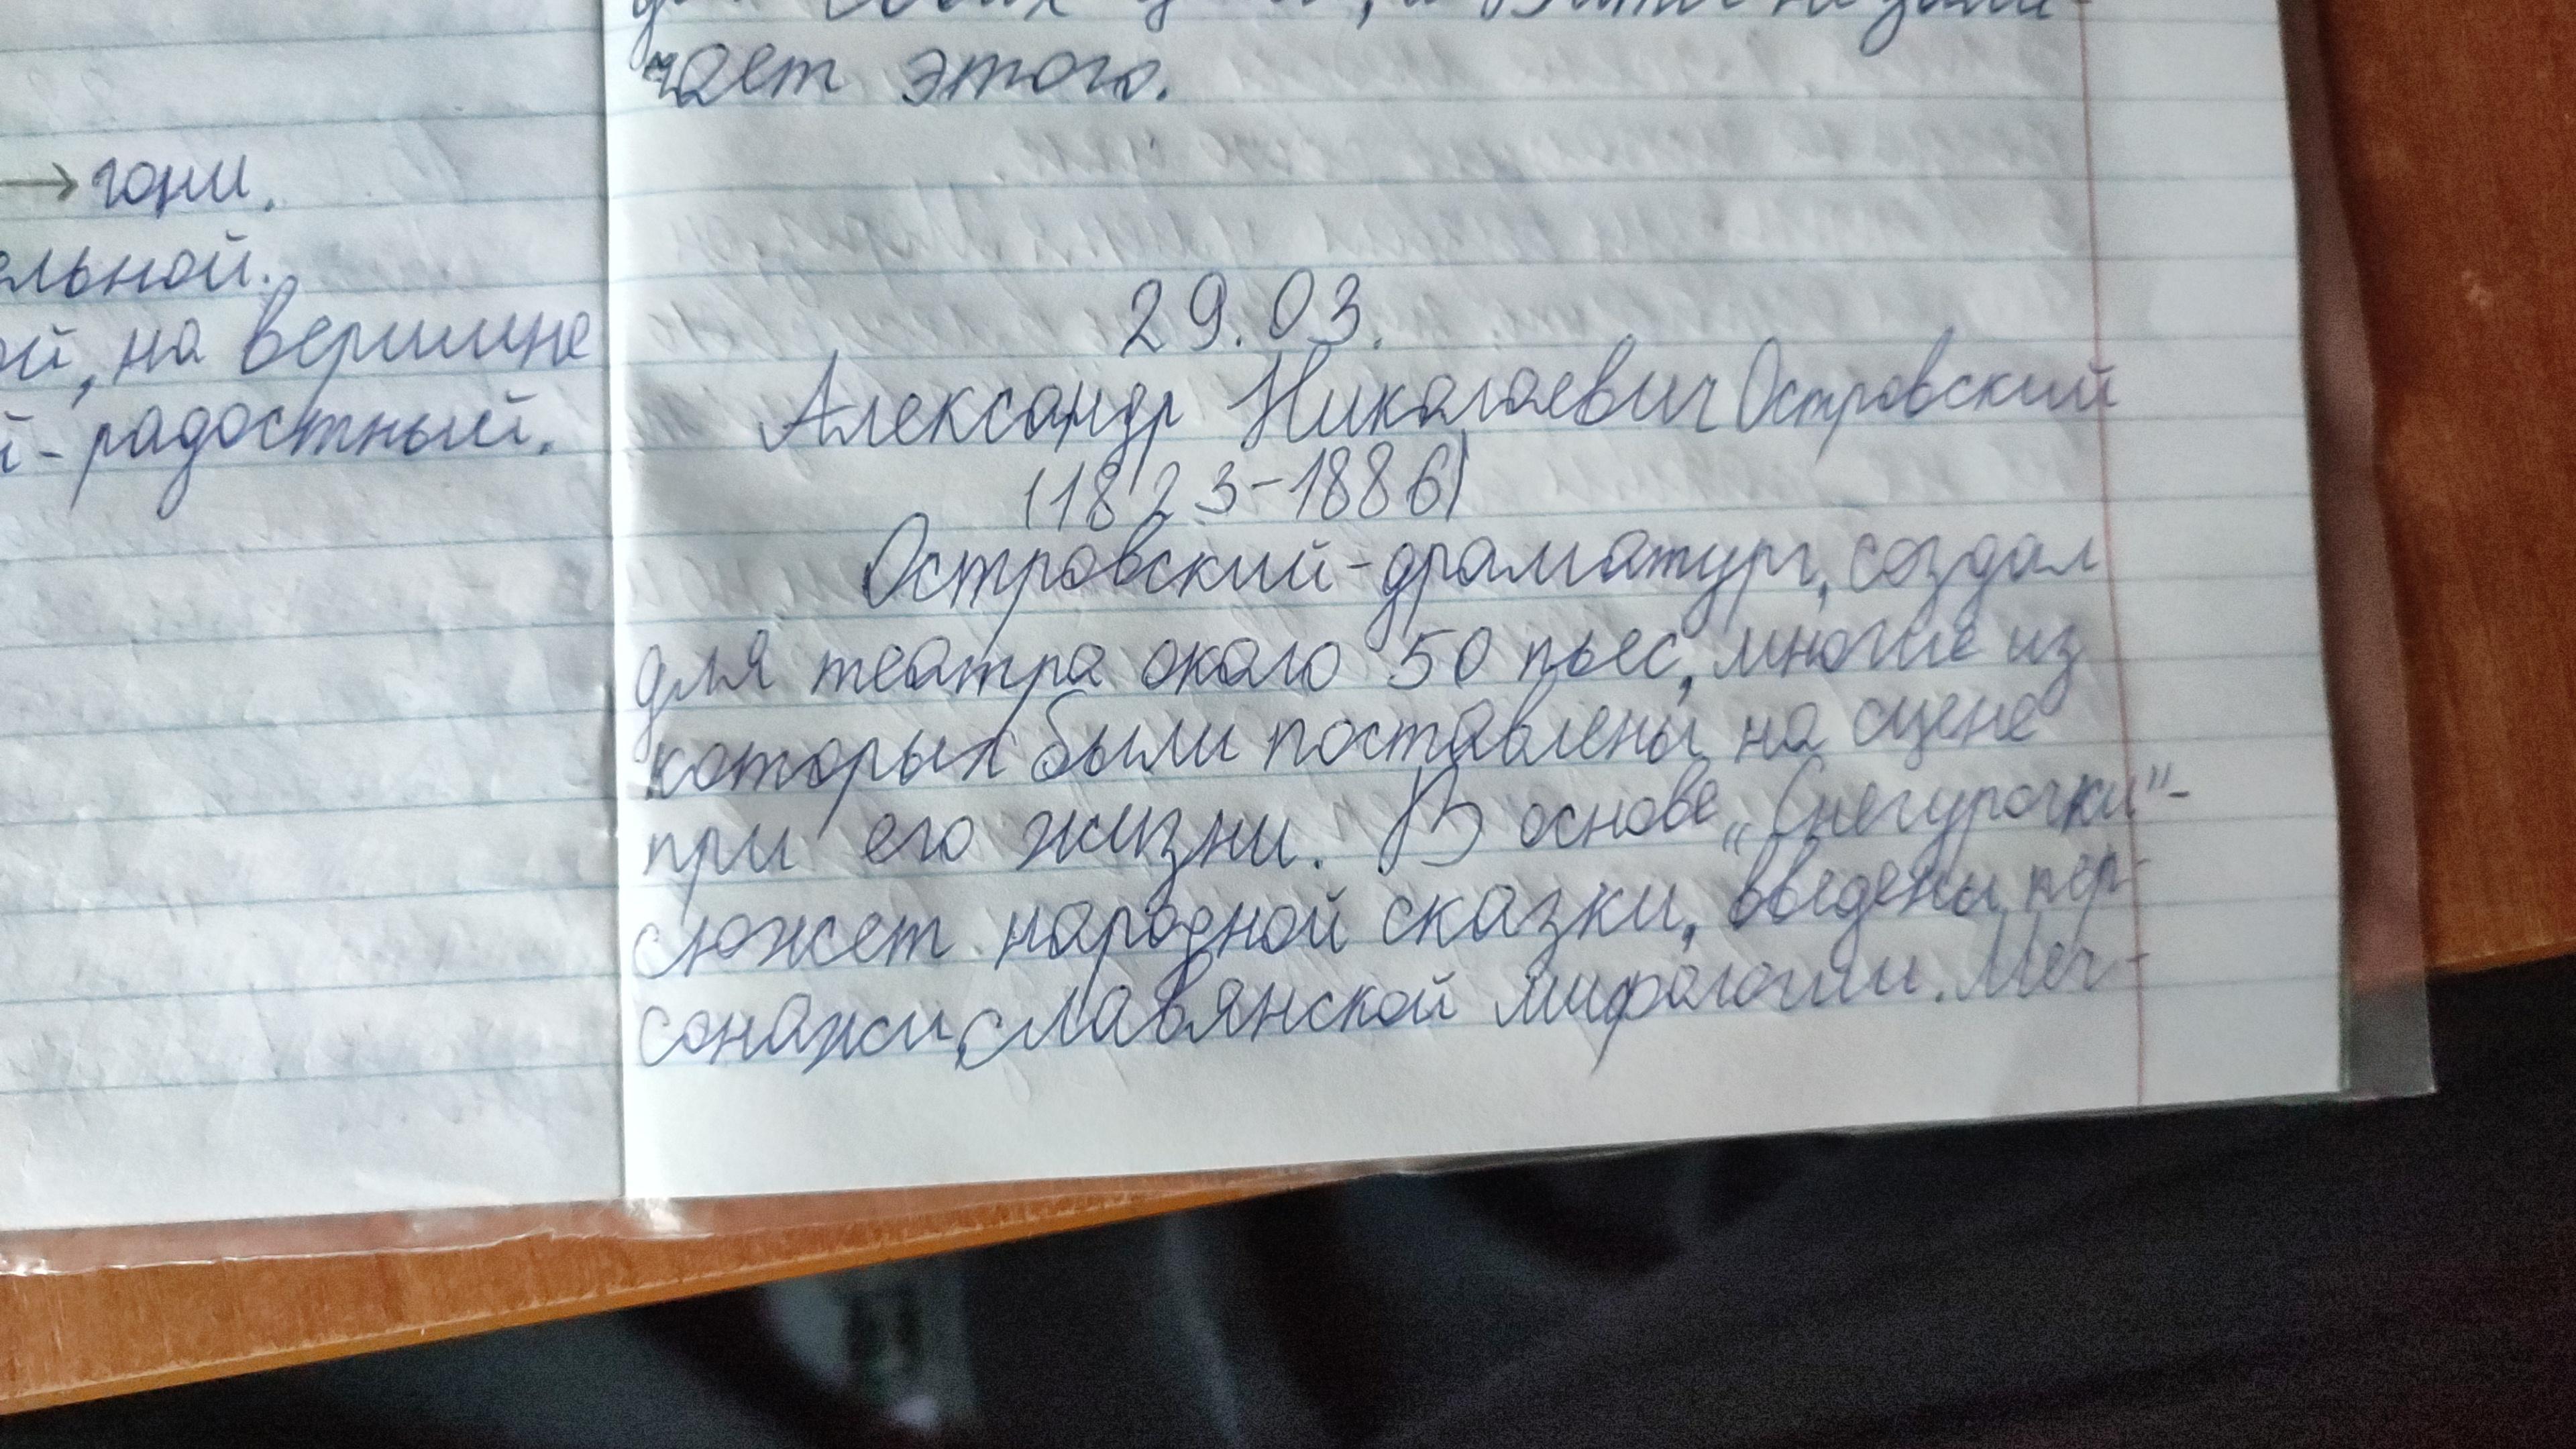 чает этого.
→ гони.
ельной.
ой, на вершине
й - радостный.
29.03.
Александр Николаевич Островский
(1823-1886)
Островский - драматург, создал
для театра около 50 пьес, многие из
которых были поставлены на сцене
при его жизни. В основе „Снегурочки" -
сюжет народной сказки, введены пер-
сонажи славянской мифологии. Меч-